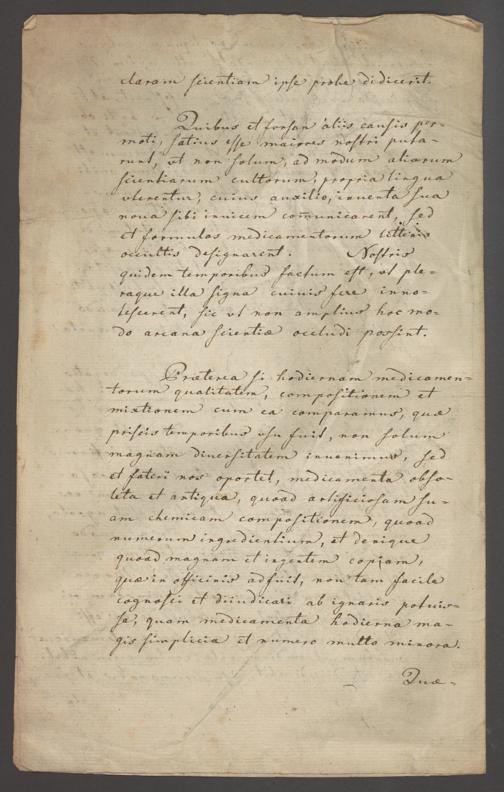 claram scientiam ipse probe didicerit.
Quibus et forsan aliis causis per-
moti, satius esse maiores nostri puta-
runt, vt non solum, ad modum aliarum
scientiarum cultorum, propria lingua
vterentur, cuius auxilio, inuenta sua
noua sibi inuicem comunicarent, sed
et formulas medicamentorum litteris
occultis designarent. Nostris
quidem temporibus factum est, vt ple-
raque illa signa cuiuis fere inno-
tescerent, sic vt non amplius hoc mo-
do arcana scientiæ occludi possint.
Præterea si hodiernam medicamen-
torum qualitatem, compositionem et
mixtionem cum ea comparamus, quæ
priscis temporibus vsu fuit, non solum
magnam diuersitatem inuenimus, sed
et fateri nos oportet, medicamenta obso-
leta et antiqua, quoad artificiosam su-
am chemicam compositionem, quoad
numerum ingredientium, et denique
quoad magnam et ingentem copiam,
quæ in officinis adfuit, non tam facile
cognosci et diiudicari ab ignaris potuis-
se, quam medicamenta hodierna ma-
gis simplicia et numero multo minora.
Quæ-